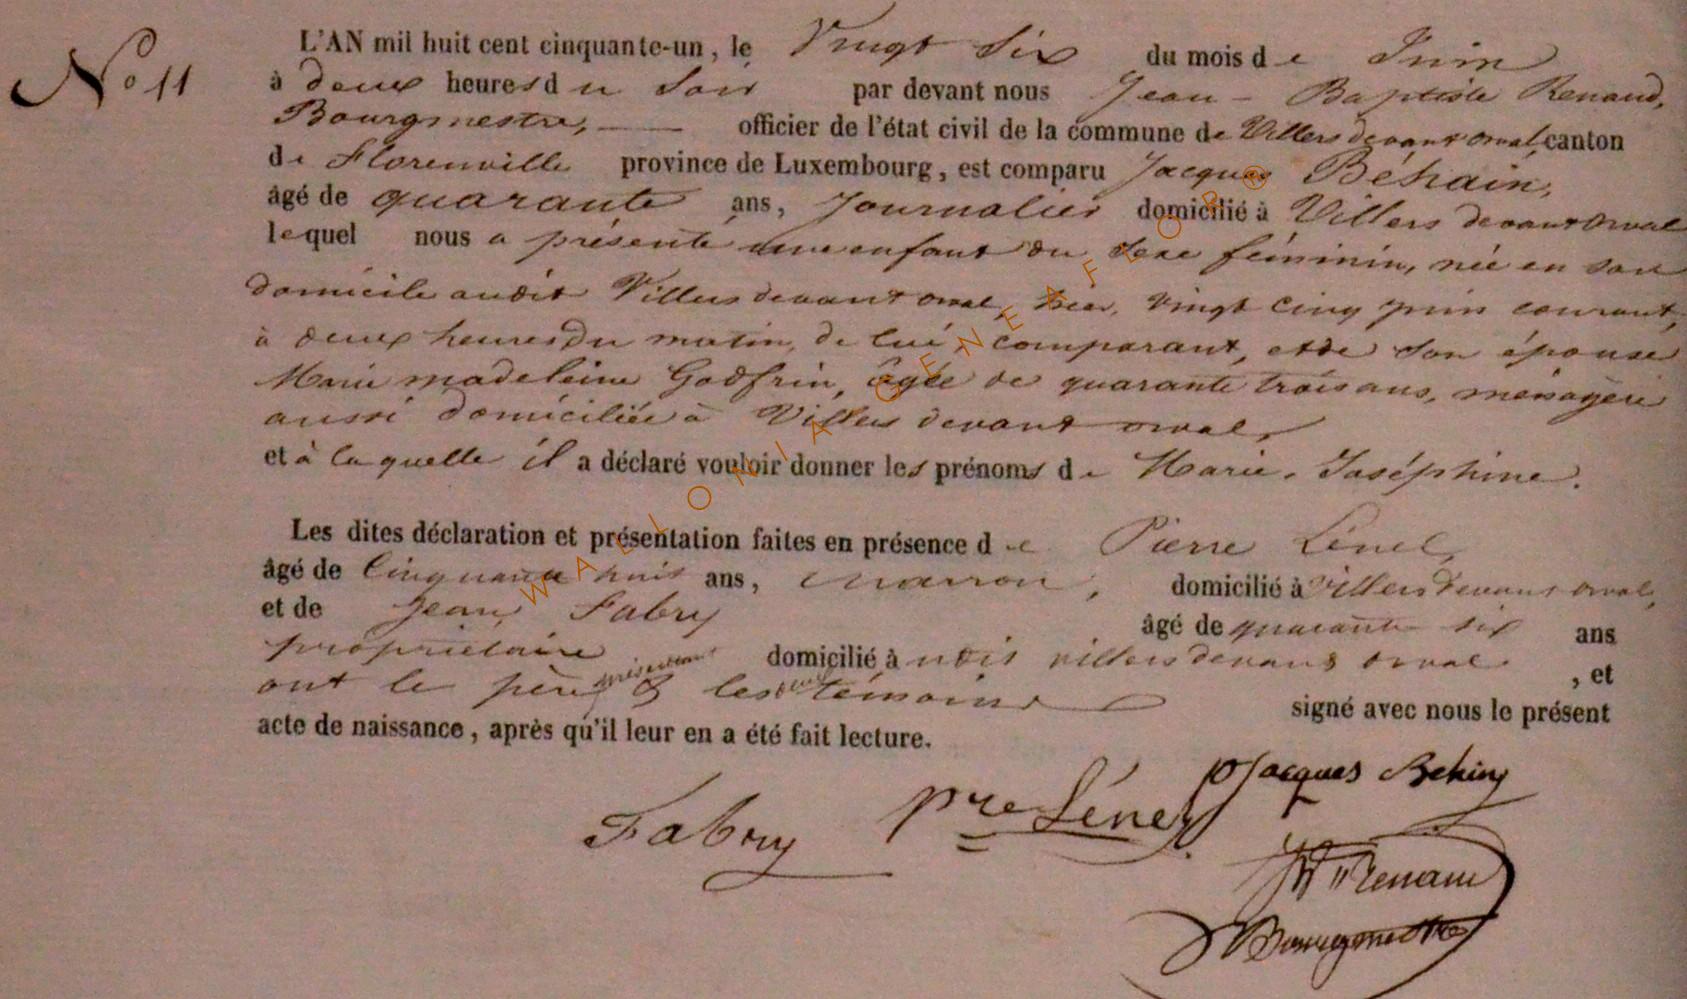 N° 11
L'AN mil huit cent cinquante-un, le Vingt Six du mois de Juin
à deux heures du Soir par devant nous Jean-Baptiste Renaud,
Bourgmestre, officier de l'état civil de la commune de Villers devant orval, canton
de Florenville province de Luxembourg, est comparu Jacques Béhain,
âgé de quarante ans, Journalier domicilié à Villers devant Orval
lequel nous a présenté une enfant du Sexe féminin, née en son
domicile audit Villers devant orval, hier, vingt cinq juin courant,
à deux heures du matin, de lui comparant, et de Son épouse
Marie madeleine Godfrin, âgée de quarante trois ans, ménagère
aussi domiciliée à Villers devant orval,
et à laquelle il a déclaré vouloir donner les prénoms de Marie, Joséphine.
Les dites déclaration et présentation faites en présence de Pierre Lénel,
âgé de Cinquante huit ans, domicilié à villers devant orval,
et de Jean Fabry âgé de quarante six ans
propriétaire domicilié à udit villers devant orval, et
ont le père & les deux témoins signé avec nous le présent
acte de naissance, après qu'il leur en a été fait lecture.
Jacques Behin
Fabry pre Lénel
Renaud
Bourgmestre
WALLONIA GENEAFLOR ®